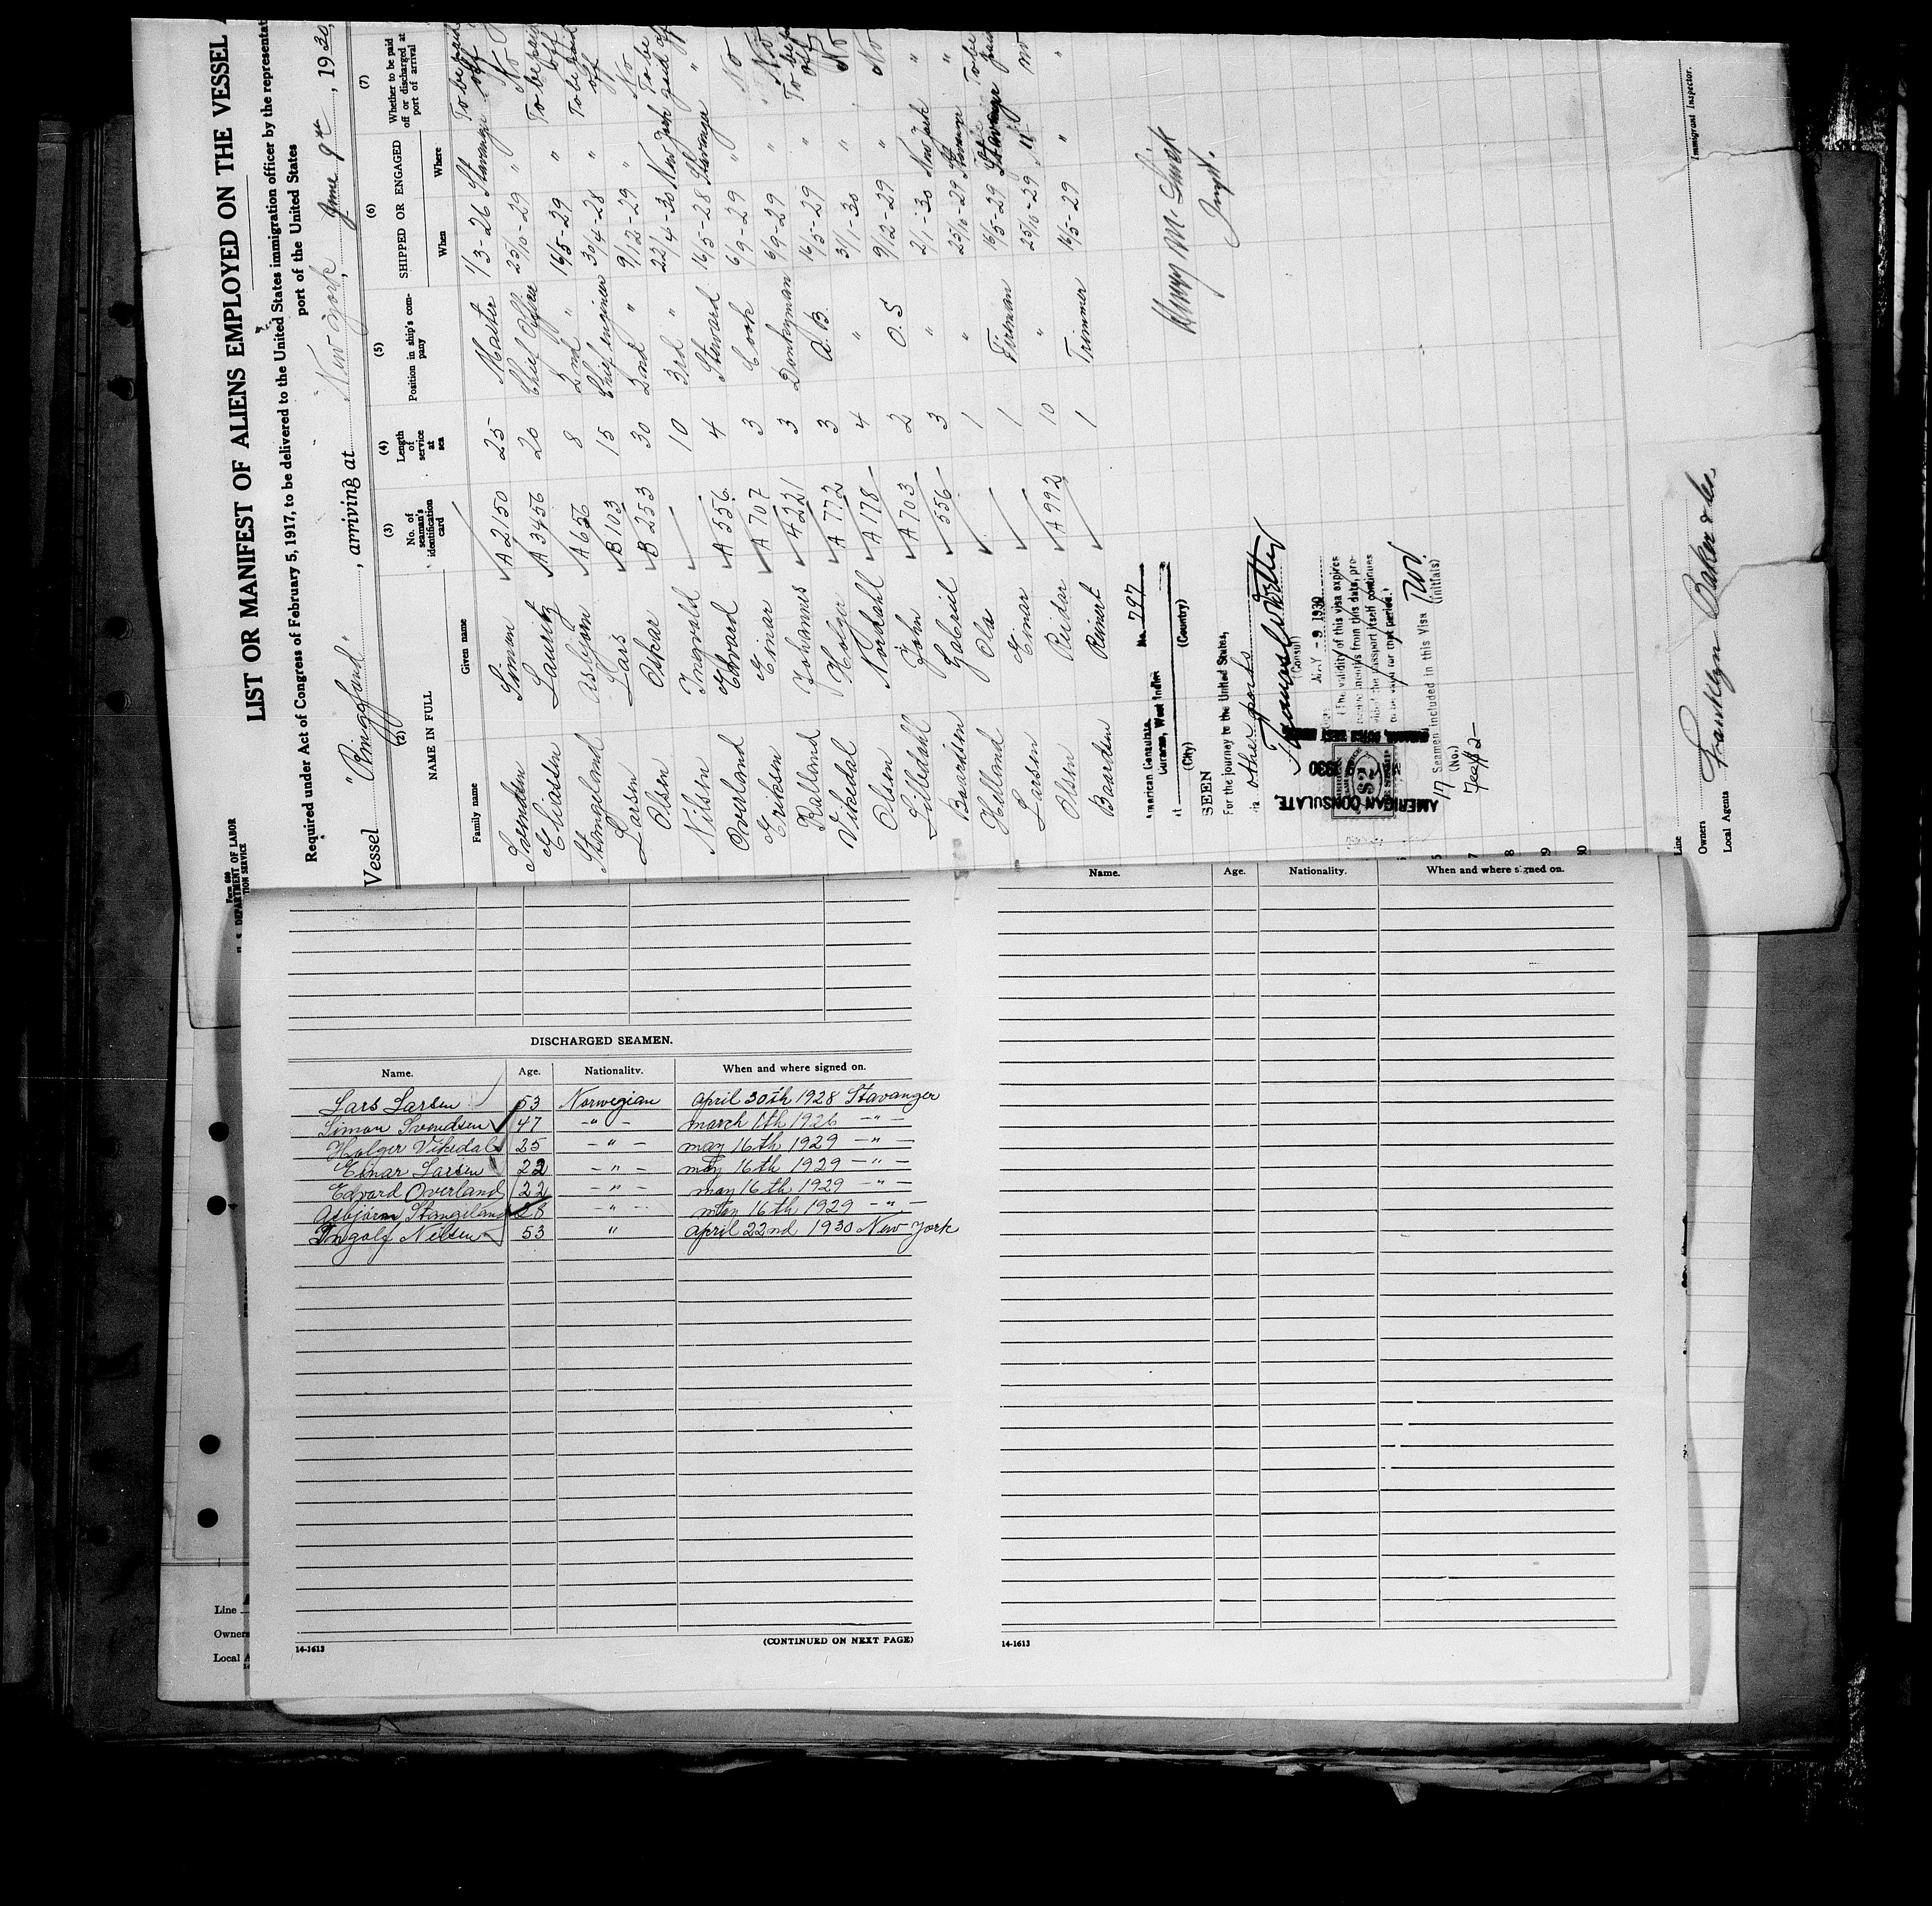 LIST OR MANIFEST OF ALIENS EMPLOYED ON THE VESSEL
Required under Act of Congress of February 5, 1917, to be delivered to the United States immigration officer by the representat
port of the United States
Vessel "Ringfond", arriving at New York, June 9th, 1930,
Form 680
U. S. DEPARTMENT OF LABOR
TION SERVICE
(2) (3) (4) (5) (6) (7)
NAME IN FULL
No. of seaman's identification card
Length of service at sea
Position in ship's company
SHIPPED OR ENGAGED
Whether to be paid off or discharged at port of arrival
Family name Given name When Where
Svendsen Simon A2150 25 Master 1/3-26 Stavanger To be paid off
Eliassen Lauritz A3456 20 Chief Officer 25/10-29 " No
Stangeland Asbjørn A656 8 2nd " 16/5-29 " To be paid off
Larsen Lars B103 15 Chief engineer 30/4-28 " To be paid off
Olsen Oskar B253 30 2nd " 9/12-29 " No
Nilsen Ingvald — 10 3rd " 22/4-30 New York To be paid off
Overland Edvard A556 4 Steward 16/5-28 Stavanger "
Eriksen Einar A707 3 Cook 6/9-29 " No
Ralland Johannes 4221 3 Donkeyman 6/9-29 " No
Vikedal Holger A772 3 A.B. 16/5-29 " To be paid off
Olsen Nordahl A178 4 " 3/1-30 " No
Lilledahl John A703 2 O.S 9/12-29 " No
Baardsen Gabriel 556 3 " 2/1-30 New York "
Helland Ola 1 " 25/10-29 Stavanger "
Larsen Einar 1 Fireman 16/5-29 Stavanger To be paid
Olsen Reidar A992 10 " 25/10-29 " no
Baarden Reinert 1 Trimmer 16/5-29 " "
American Consulate, No. 797
Curacao, West Indies
(City) (Country)
SEEN
For the journey to the United States,
other ports
(Consul)
MAY -9 1930
(The validity of this visa expires
months from this date, pro-
vided the passport itself continues
to be valid for that period.)
AMERICAN CONSULATE
$2
17 Seamen included in this Visa
(No.) (Initials)
Fee $2-
Immigrant Inspector.
Line
Owners
Local Agents Franklyn Baker & Co.
DISCHARGED SEAMEN.
Name. Age. Nationality. When and where signed on.
Lars Larsen 53 Norwegian April 30th 1928 Stavanger
Simon Svendsen 47 -"- march 1th 1926 -"-
Holger Vikedal 25 -"- may 16th 1929 -"-
Einar Larsen 22 -"- may 16th 1929 -"-
Edvard Overland 22 -"- may 16th 1929 -"-
Asbjørn Stangeland 28 -"- may 16th 1929 -"-
Ingolf Nilsen 53 " April 22nd 1930 New York
14-1613
(CONTINUED ON NEXT PAGE)
Name. Age. Nationality. When and where signed on.
14-1613
Line
Owners
Local A